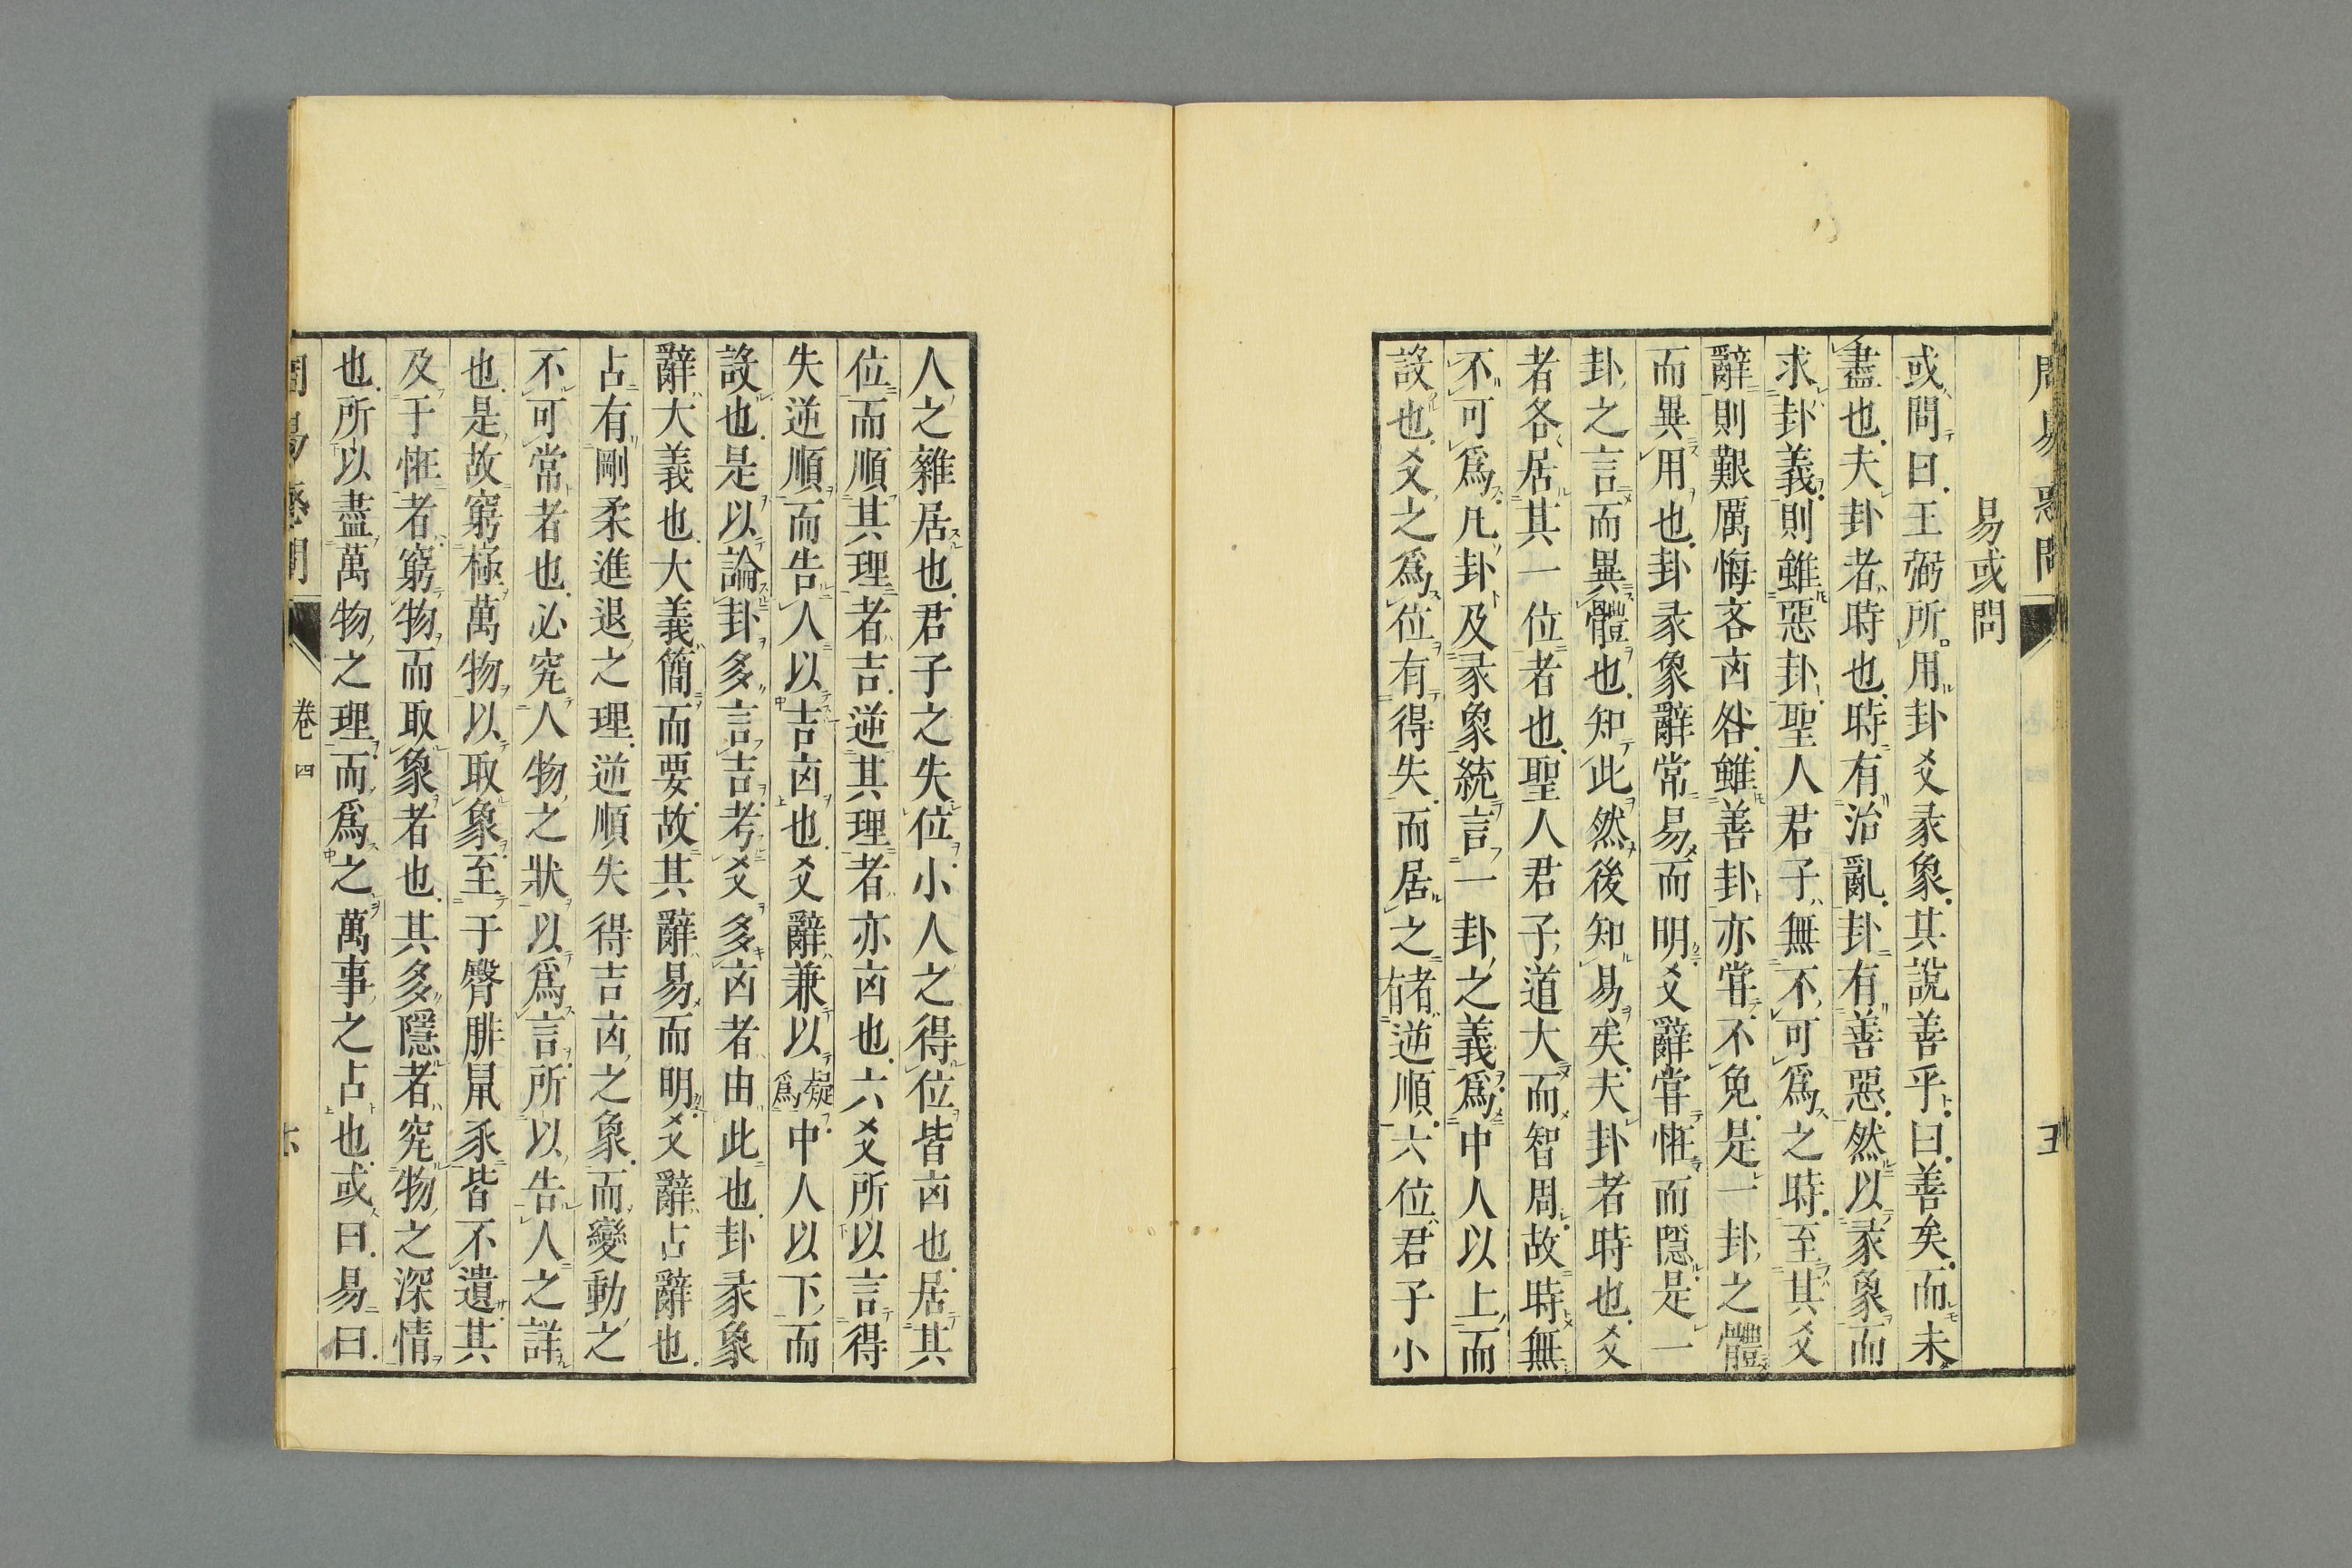 易或問
或問曰王弼所用卦爻彖象其說善乎曰善矣而未
盡也夫卦者時也時有治亂卦有善惡然以彖象而
求卦義則雖惡卦聖人君子無不可為之時至其爻
辭則艱厲悔吝凶咎雖善卦亦嘗不免是一卦之體
而異用也卦彖象辭常易而明爻辭嘗怪而隱是一
卦之言而異體也知此然後知易矣夫卦者時也爻
者各居其一位者也聖人君子道大而智周故時無
不可為凡卦及彖象統言一卦之義為中人以上而
設也爻之為位有得失而居之者有逆順六位君子小
人之雜居也君子之失位小人之得位皆凶也居其
位而順其理者吉逆其理者亦凶也六爻所以言得
失逆順而告人以吉凶也爻辭兼以為中人以下而
設也是以論卦多言吉考爻多凶者由此也卦彖象
辭大義也大義簡而要故其辭易而明爻辭占辭也
占有剛柔進退之理逆順失得吉凶之象而變動之
不可常者也必究人物之狀以為言所以告人之詳
也是故窮極萬物以取象至于臀腓鼠豕皆不遺其
及于怪者窮物而取象者也其多隱者究物之深情
也所以盡萬物之理而為之萬事之占也或曰易曰
卷四